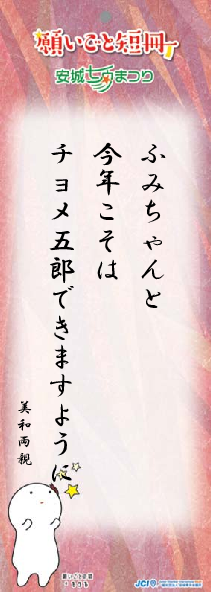 願いごと短冊
安城七夕まつり
ふみちゃんと
今年こそは
チョメ五郎できますように
美和両親
JCI